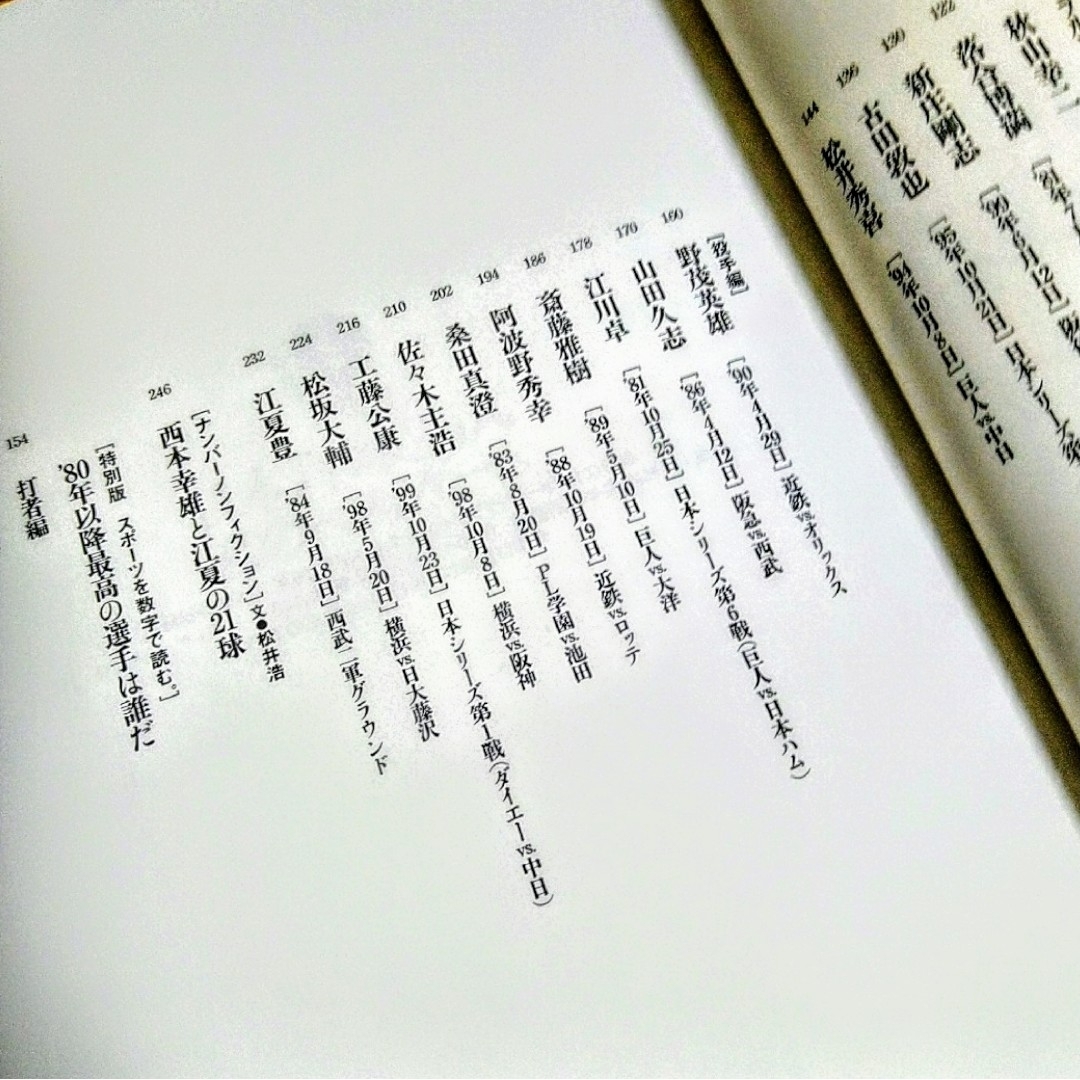 秋山幸二
122 落合博満 [’81年
130 新庄剛志 [’99年6月12日]
136 古田敦也 [’95年10月21日] 日本シリーズ第
144 松井秀喜 [’94年10月8日] 巨人vs.中日
[投手編]
160 野茂英雄 [’90年4月29日] 近鉄vs.オリックス
170 山田久志 [’86年4月12日] 阪急vs.西武
178 江川卓 [’81年10月25日] 日本シリーズ第6戦(巨人vs.日本ハム)
186 斎藤雅樹 [’89年5月10日] 巨人vs.大洋
194 阿波野秀幸 [’88年10月19日] 近鉄vs.ロッテ
202 桑田真澄 [’83年8月20日] PL学園vs.池田
210 佐々木主浩 [’98年10月8日] 横浜vs.阪神
216 工藤公康 [’99年10月23日] 日本シリーズ第1戦(ダイエーvs.中日)
224 松坂大輔 [’98年5月20日] 横浜vs.日大藤沢
232 江夏豊 [’84年9月18日] 西武二軍グラウンド
[ナンバーノンフィクション] 文●松井浩
246 西本幸雄と江夏の21球
[特別版 スポーツを数字で読む。]
’80年以降最高の選手は誰だ
154 打者編